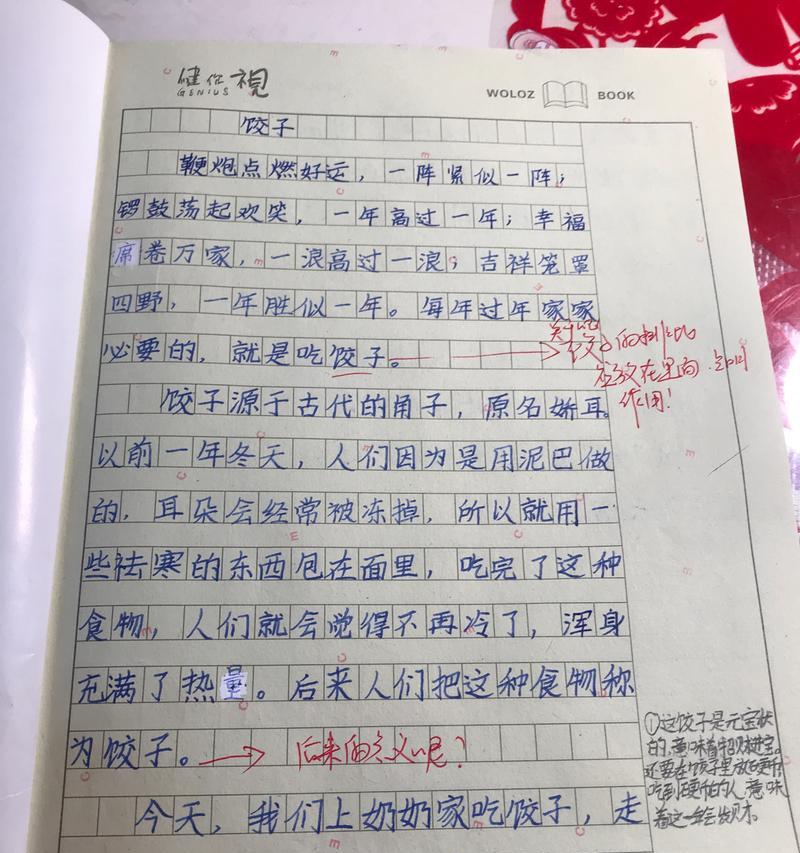 健你視
GENIUS
WOLOZ BOOK
饺子
鞭炮点燃好运，一阵紧似一阵；
锣鼓荡起欢笑，一年高过一年；幸福
席卷万家，一浪高过一浪；吉祥笼罩
四野，一年胜似一年。每年过年家家
必要的，就是吃饺子。
饺子源于古代的角子，原名娇耳。
以前一年冬天，人们因为是用泥巴做
的，耳朵会经常被冻掉，所以就用一
些祛寒的东西包在面里，吃完了这种
食物，人们就会觉得不再冷了，浑身
充满了热量。后来人们把这种食物称
为饺子。
后来的意义呢？
今天，我们上奶奶家吃饺子，走
在里面
作用！
①这饺子是元宝状
的，意味着招财进宝。
还要在饺子里放硬币
吃到硬币的人，意味
着这一年会发财。